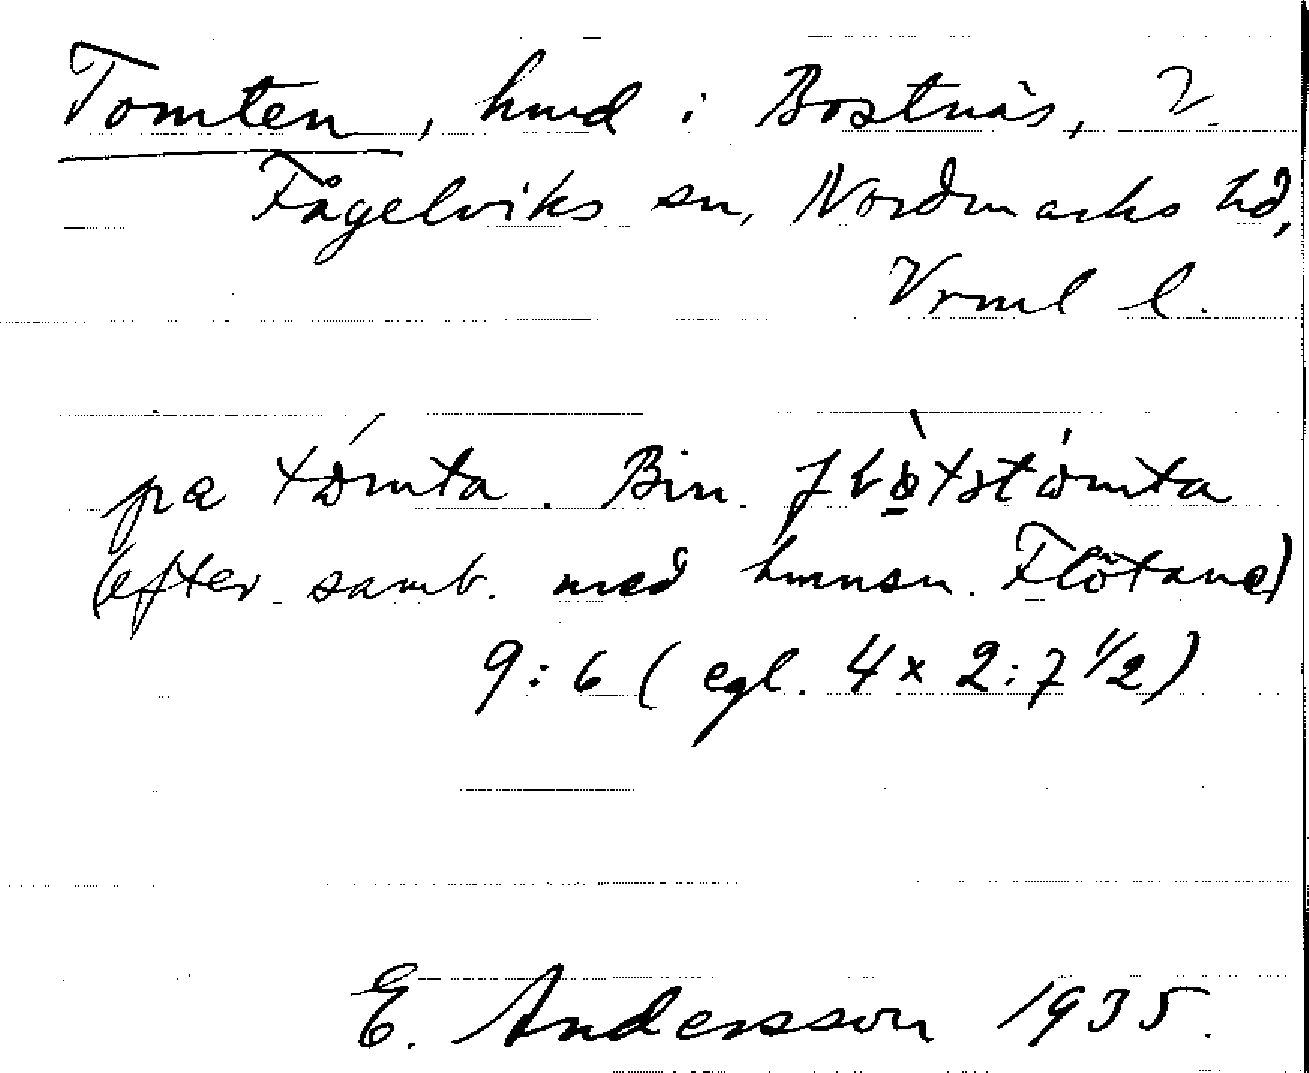 Tomten, hmd i Bostnäs, V.
Fågelviks sn, Nordmarks hd,
Vrml l.
pa tómta. Bin.
(efter samb. med hmnsn. Flötane)
9:6 (egl. 4x2:7 1/2)
E. Andersson 1935.